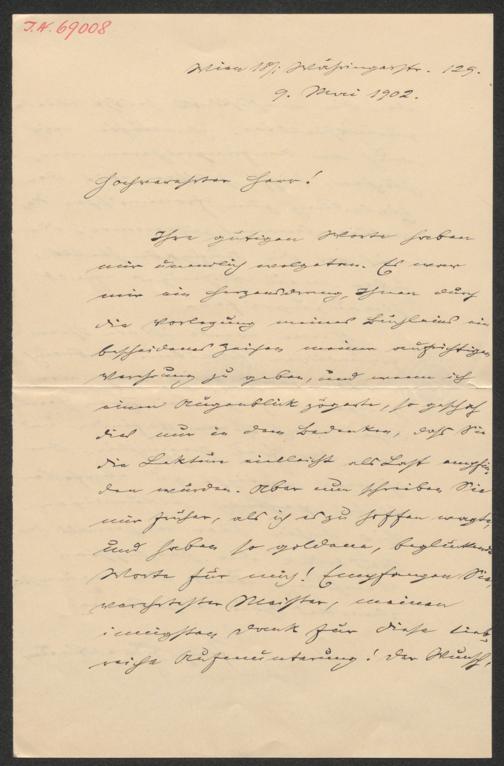 I.N. 69008
Wien 18/1 Währingerstr. 129.
9. Mai 1902.
Hochverehrter Herr!
Ihre gütigen Worte haben
mir unendlich wolgetan. Es war
mir ein Herzensdrang, Ihnen durch
die Vorlegung meines Büchleins ein
bescheidenes Zeichen meiner aufrichtigen
Verehrung zu geben, und wenn ich
einen Augenblick zögerte, so geschah
dies nur in dem Bedenken, daß Sie
die Lektüre vielleicht als Last empfin-
den würden. Aber nun schreiben Sie
mir früher, als ich es zu hoffen wagte,
und haben so goldene, beglückende
Worte für mich! Empfangen Sie,
verehrtester Meister, meinen
innigsten Dank für diese lieb-
reiche Aufmunterung! Der Wunsch,